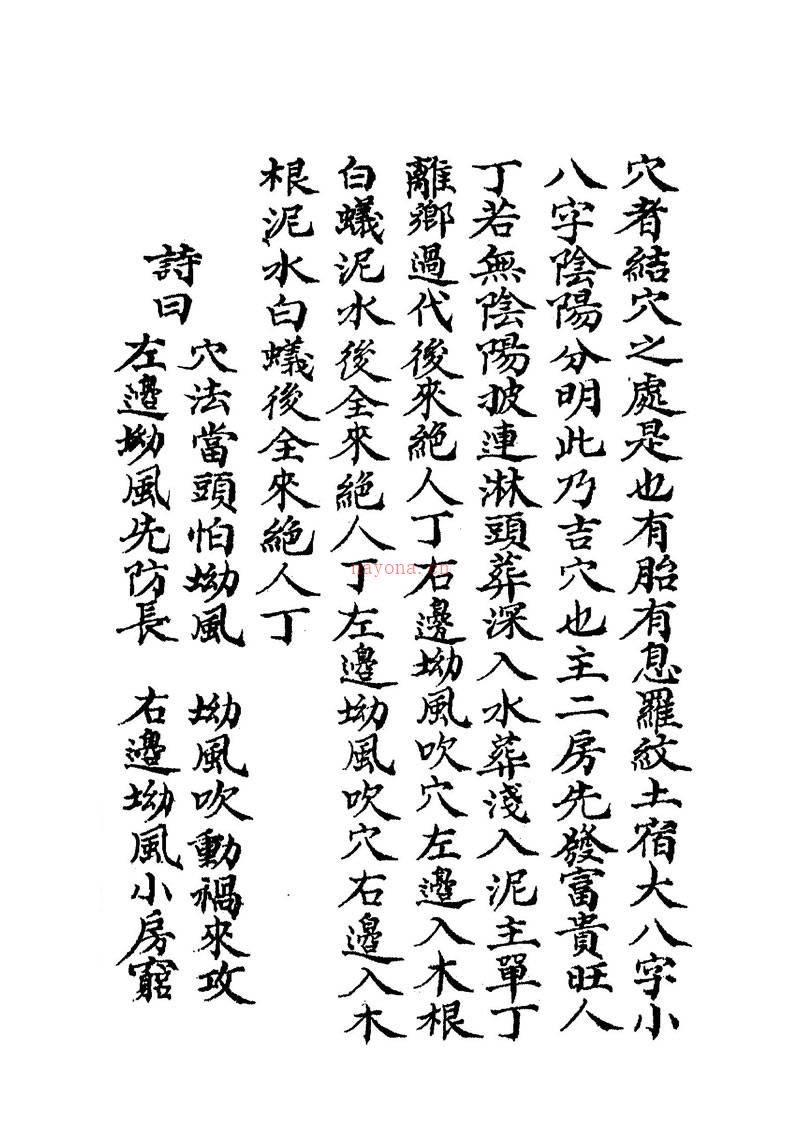 穴者結穴之處是也有胎有息羅紋土宿大八字小
八字陰陽分明此乃吉穴也主二房先發富貴旺人
丁若無陰陽披連淋頭葬深入水葬淺入泥主單丁
離鄉過代後來絕人丁右邊坳風吹穴左邊入木根
白蟻泥水後全來絕人丁左邊坳風吹穴右邊入木
根泥水白蟻後全來絕人丁
詩曰
穴法當頭怕坳風 坳風吹動禍來攻
左邊坳風先防長 右邊坳風小房窮
nayona.cn